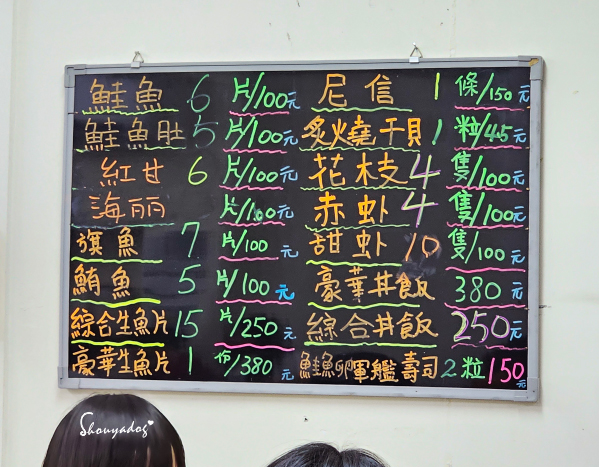 鮭魚 6 片/100元
鮭魚肚 5 片/100元
紅甘 6 片/100元
海丽 片/100元
旗魚 7 片/100元
鮪魚 5 片/100元
綜合生魚片 15 片/250元
豪華生魚片 1 份/380元
尼信 1 條/150元
炙燒干貝 1 粒/45元
花枝 4 隻/100元
赤虾 4 隻/100元
甜虾 10 隻/100元
豪華丼飯 380元
綜合丼飯 250元
鮭魚卵軍艦壽司 2粒150元
Shouyadog